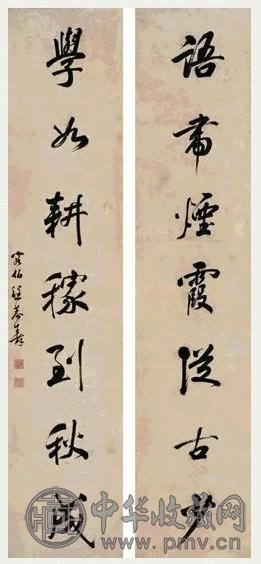 語帶煙霞從古少
學如耕稼到秋成
容伯程恭壽
中华收藏网
www.pmv.cn